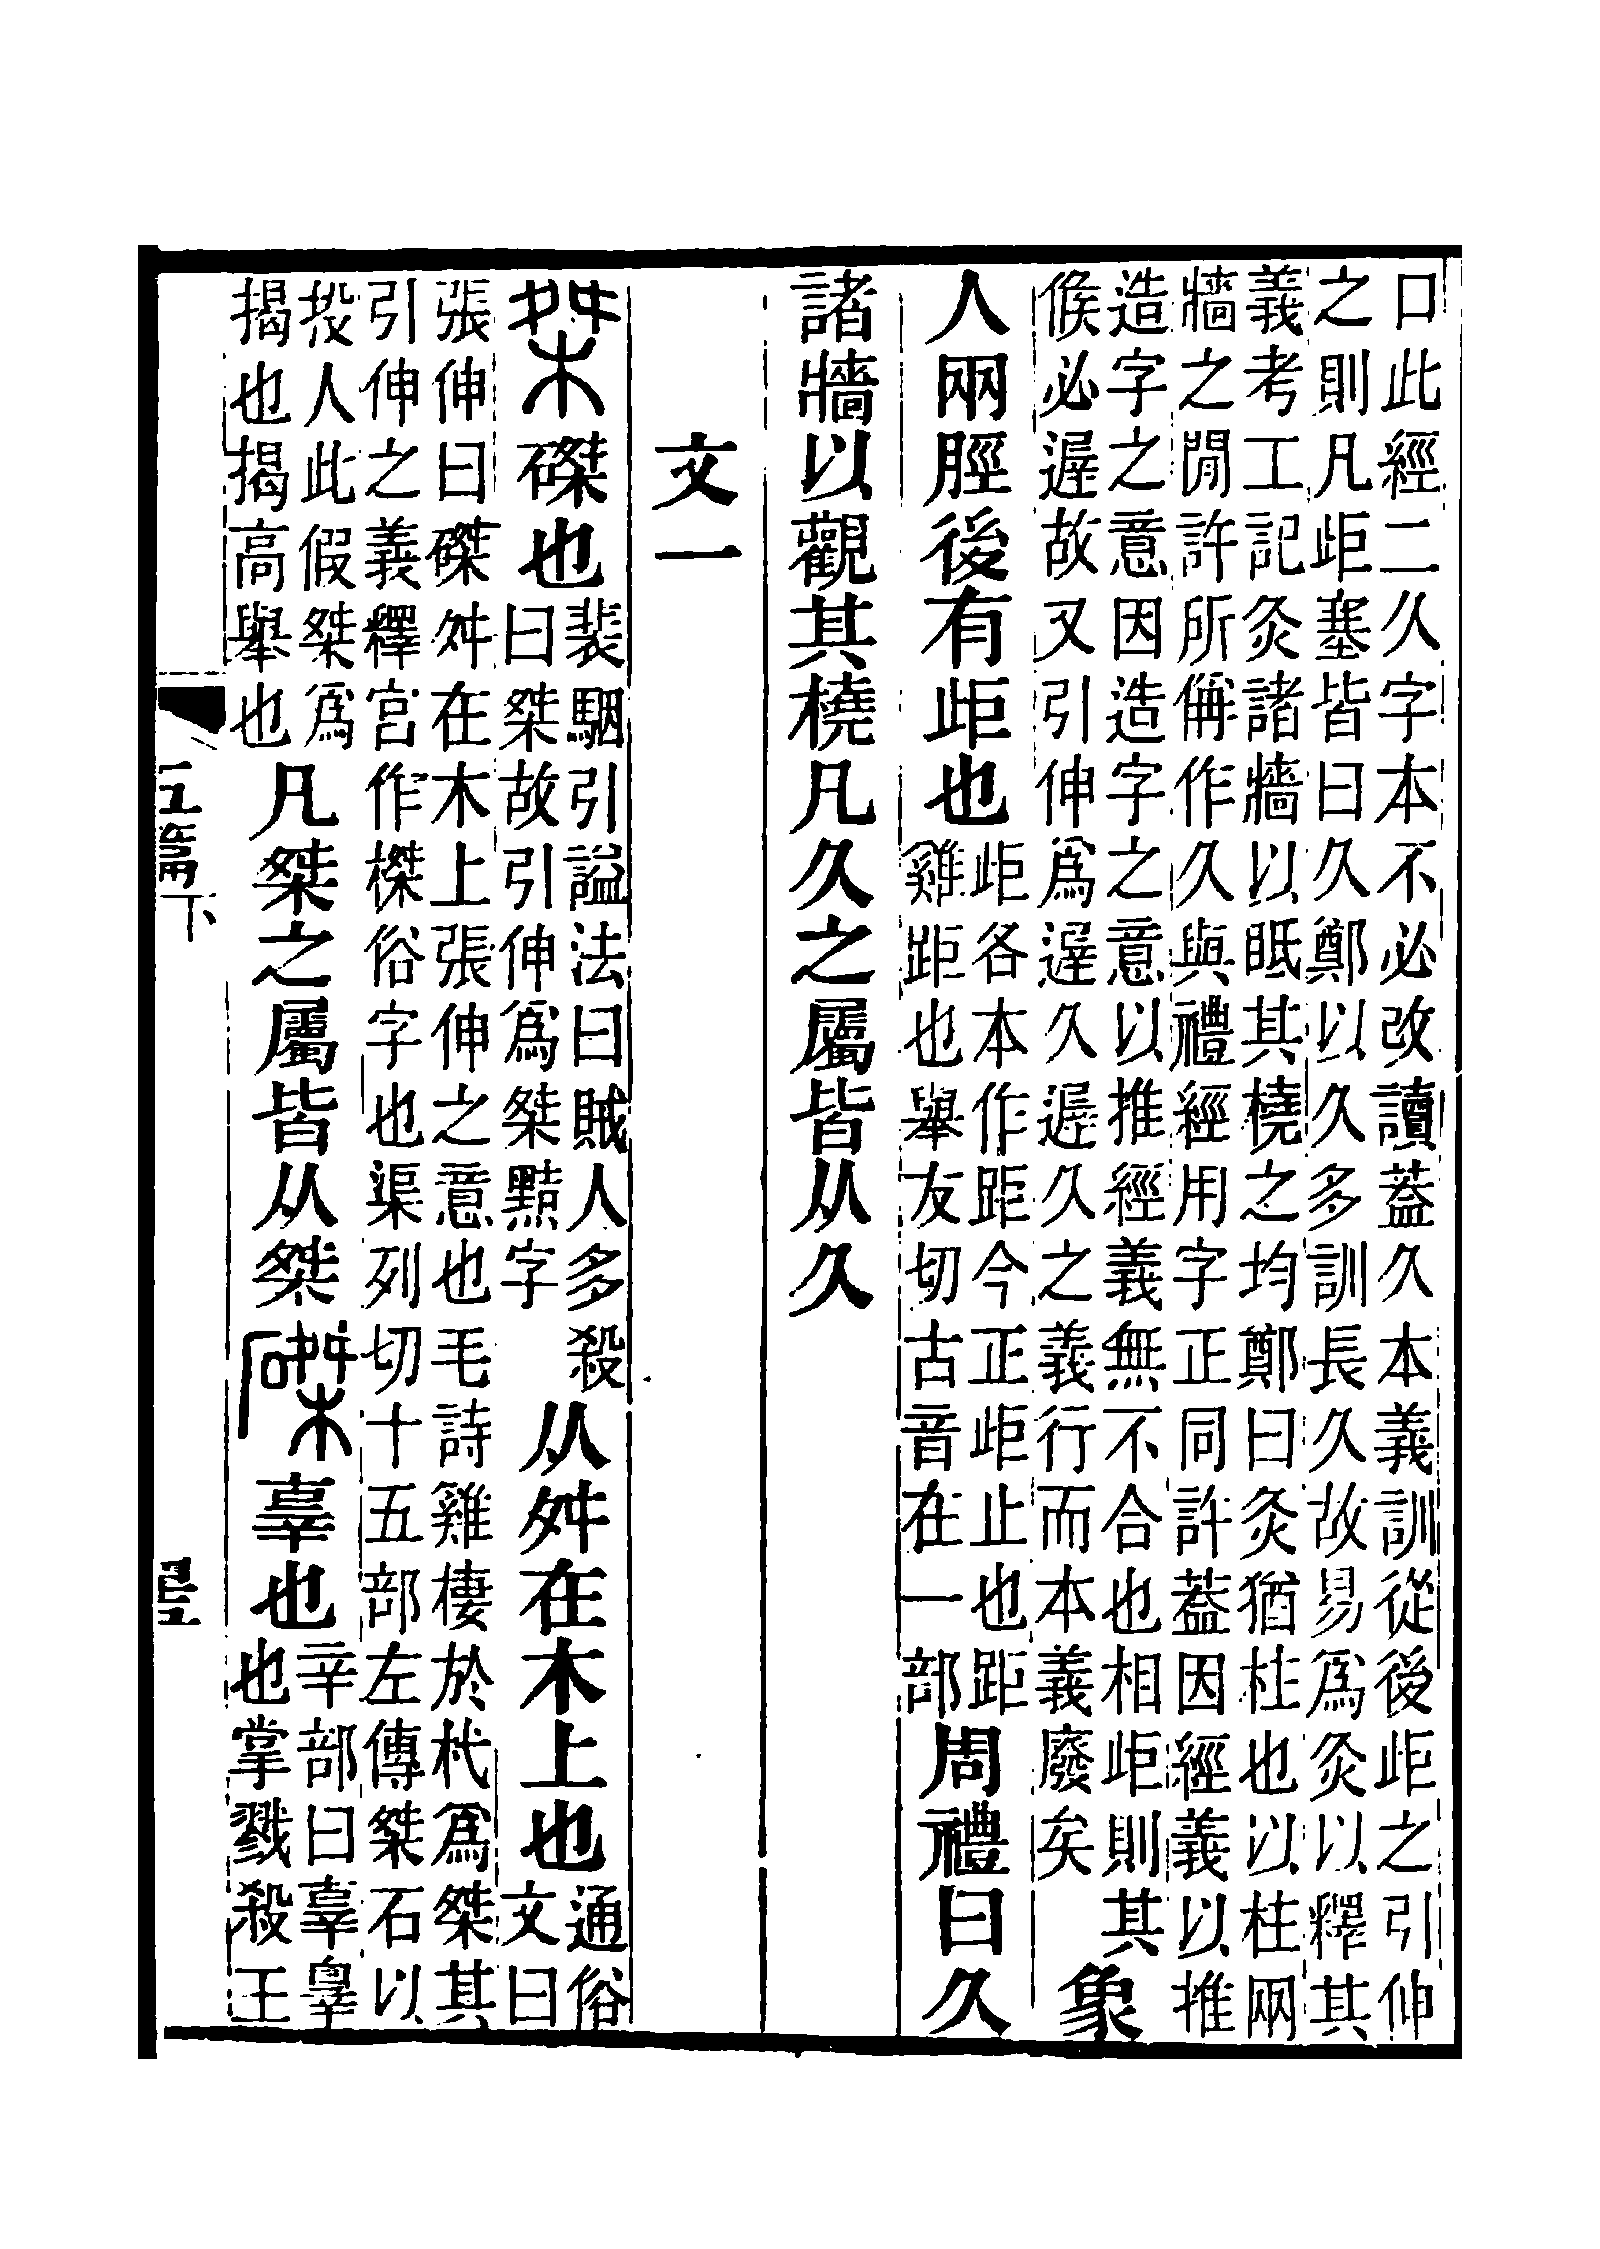 口此經二久字本不必改讀蓋久本義訓從後歫之引伸
之則凡歫塞皆曰久鄭以久多訓長久故易爲灸以釋其
義考工記灸諸牆以眡其橈之均鄭曰灸猶柱也以柱兩
牆之閒許所偁作久與禮經用字正同許蓋因經義以推
造字之意因造字之意以推經義無不合也相歫則其
候必遲故又引伸爲遲久遲久之義行而本義廢矣
象
人兩脛後有歫也
歫各本作距今正歫止也距
雞距也舉友切古音在一部
周禮曰久
諸牆以觀其橈凡久之屬皆从久
文一
桀磔也
裴駰引謚法曰賊人多殺
曰桀故引伸爲桀黠字
从舛在木上也
通俗
文曰
張伸曰磔舛在木上張伸之意也毛詩雞棲於杙爲桀其
引伸之義釋宫作榤俗字也渠列切十五部左傳桀石以
投人此假桀爲
揭也揭高舉也
凡桀之屬皆从桀磔辜也
辛部曰辜辠
也掌戮殺王
五篇下